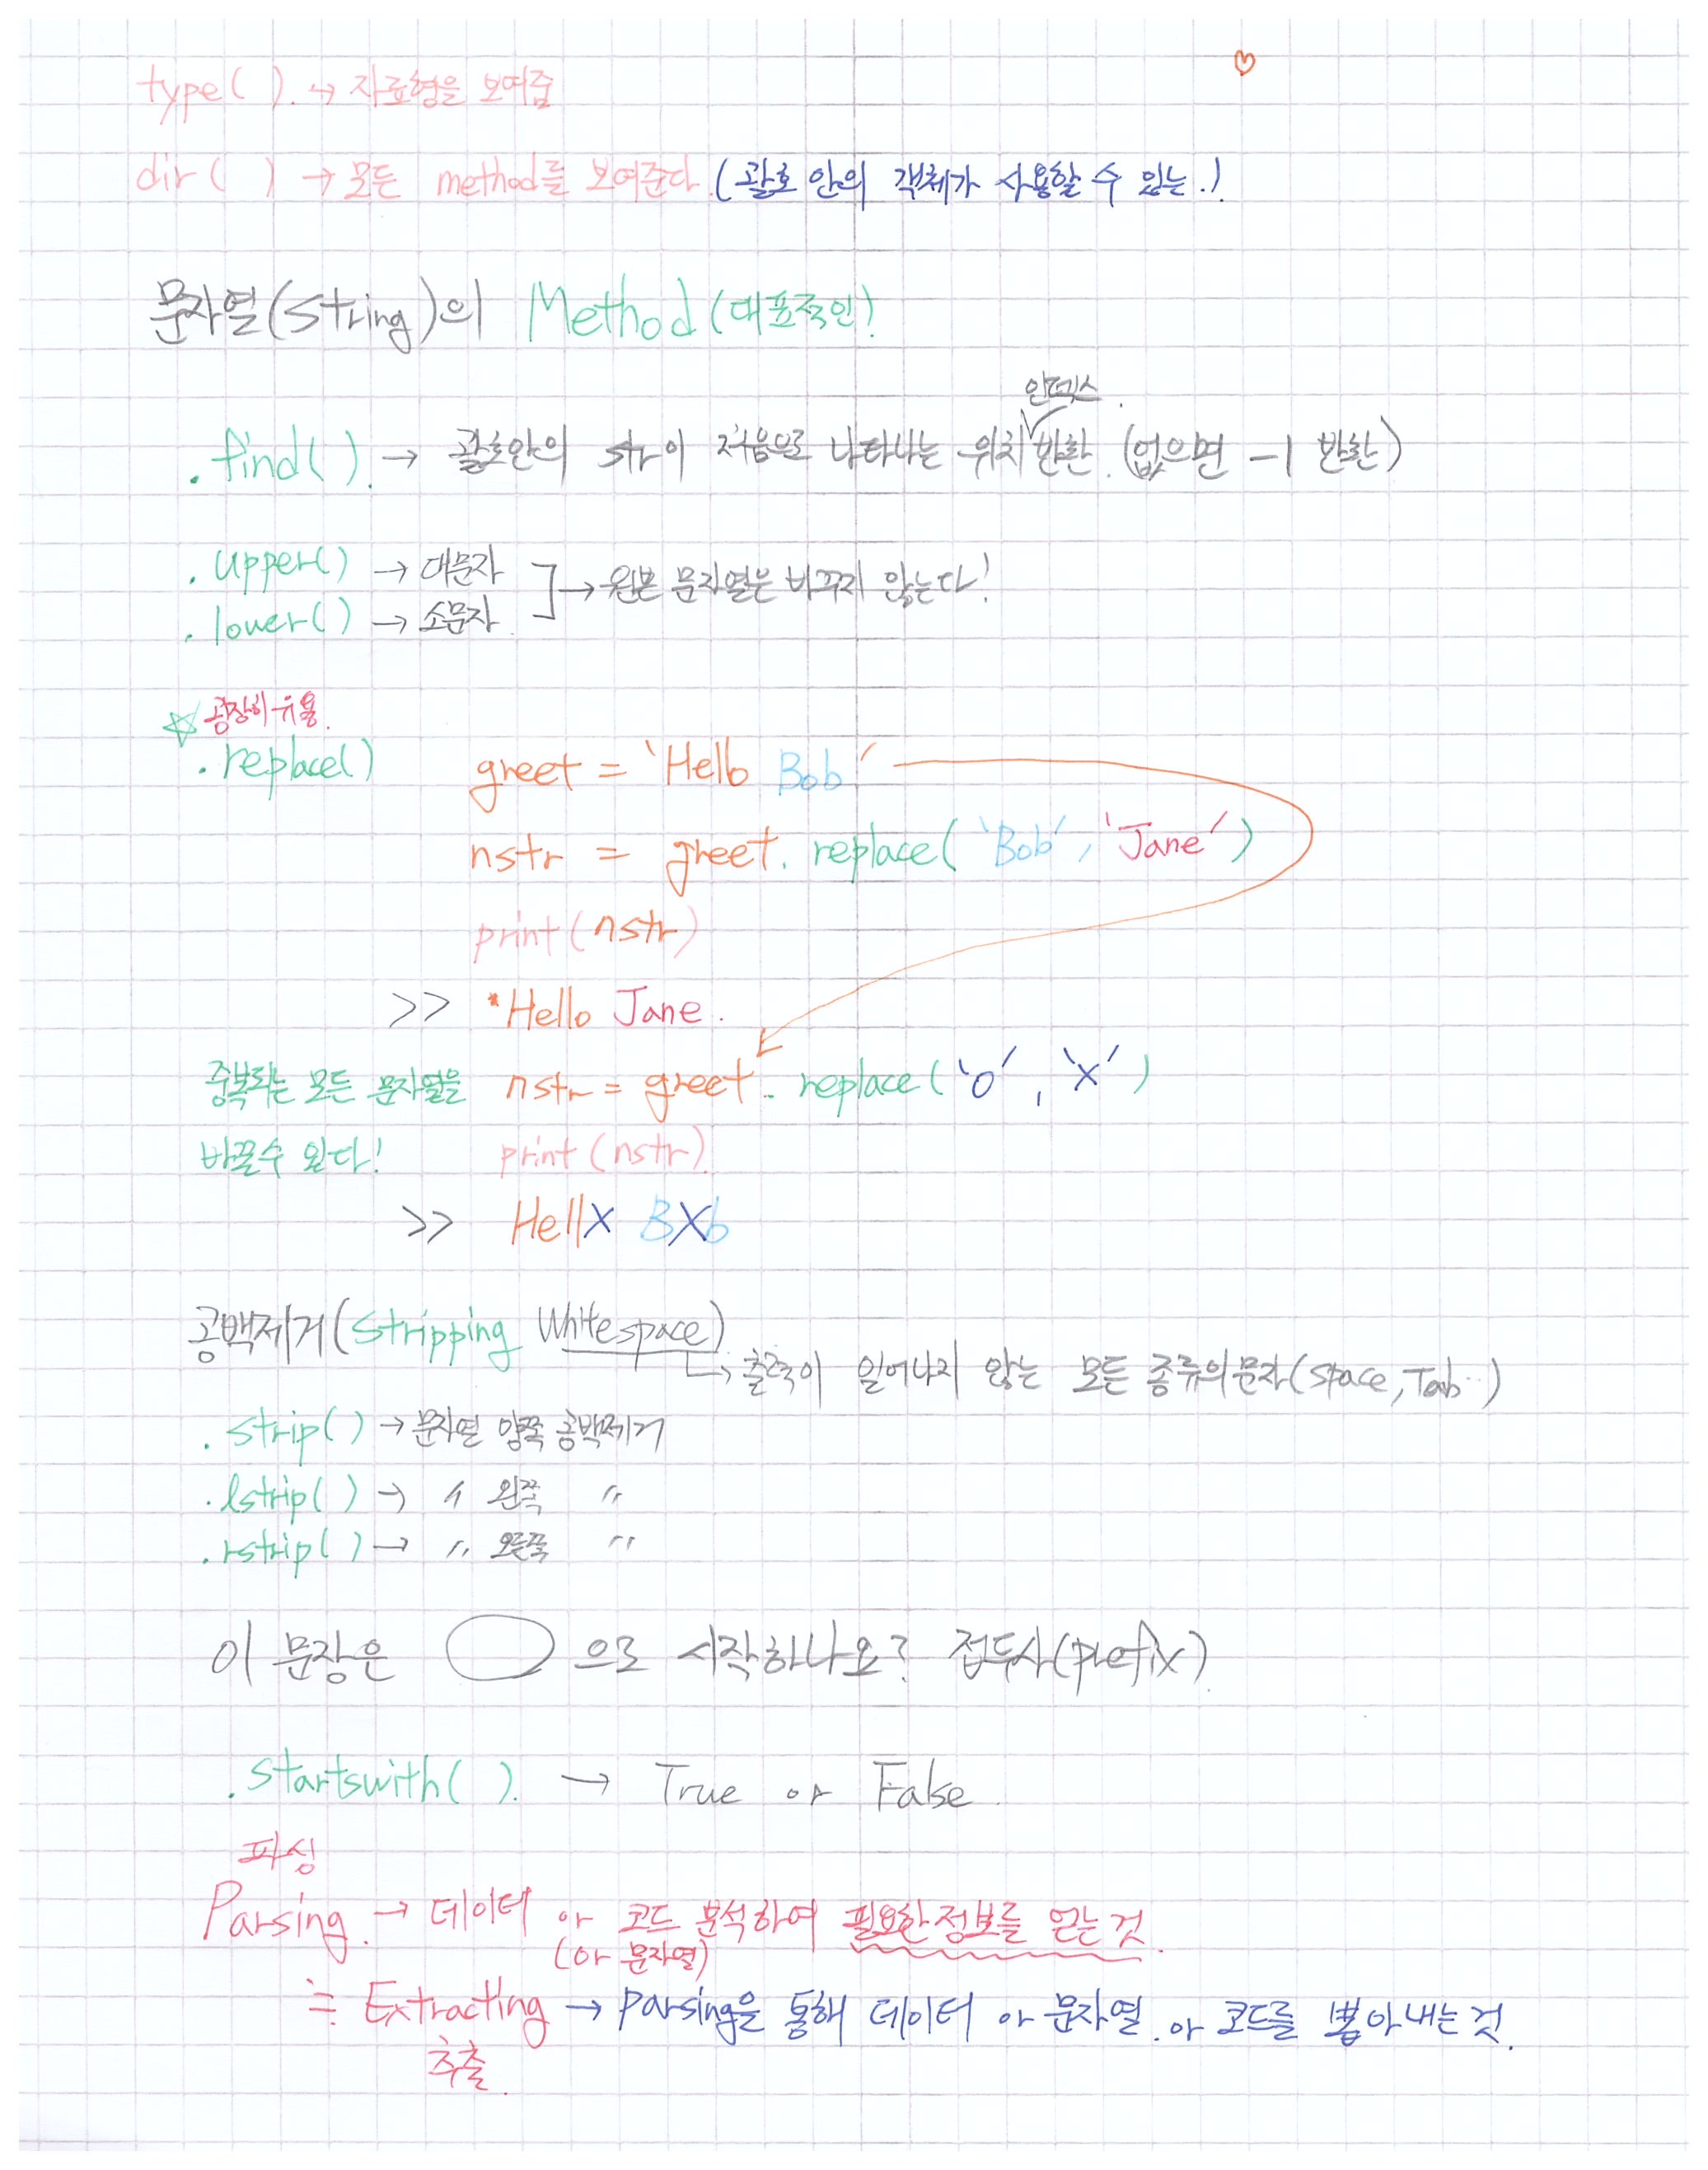 type( ). → 자료형을 보여줌
dir( ) → 모든 method를 보여준다. (괄호 안의 객체가 사용할 수 있는.)
문자열(string)의 Method (대표적인)
인덱스.
.find( ). → 괄호안의 str이 처음으로 나타나는 위치 ✓ 반환. (없으면 -1 반환)
.upper( ) → 대문자
→ 원본 문자열은 바꾸지 않는다!
.lower( ) → 소문자
☆ 굉장히 유용.
.replace( ) greet = 'Hello Bob'
nstr = greet. replace( 'Bob', 'Jane' )
print(nstr)
>> Hello Jane.
중복되는 모든 문자열을 nstr = greet. replace( 'o', 'X' )
바꿀수 있다! print(nstr)
>> HellX BXb
공백제거(Stripping Whitespace)
→ 출력이 일어나지 않는 모든 종류의 문자(space, Tab..)
.strip( ) → 문자열 양쪽 공백제거
.lstrip( ) → 〃 왼쪽 〃
.rstrip( ) → 〃 오른쪽 〃
이 문장은 ◯ 으로 시작하나요? 접두사(prefix).
.startswith( ). → True or False.
파싱
Parsing. → 데이터 or 코드 분석하여 필요한 정보를 얻는 것.
(or 문자열)
≒ Extracting → parsing을 통해 데이터 or 문자열. or 코드를 뽑아내는 것.
추출.